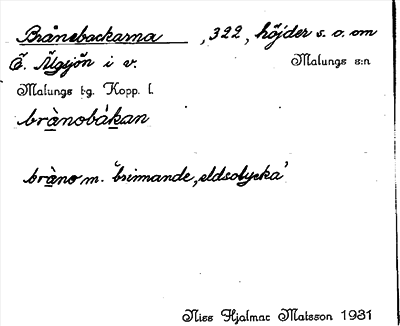 Brånobackarna, 322, höjder s. o. om
Ö. Älgsjön i v. Malungs s:n
Malungs t-g. Kopp. l.
brànobákan
bràno m. 'brinnande, eldsolycka'
Niss Hjalmar Matsson 1931